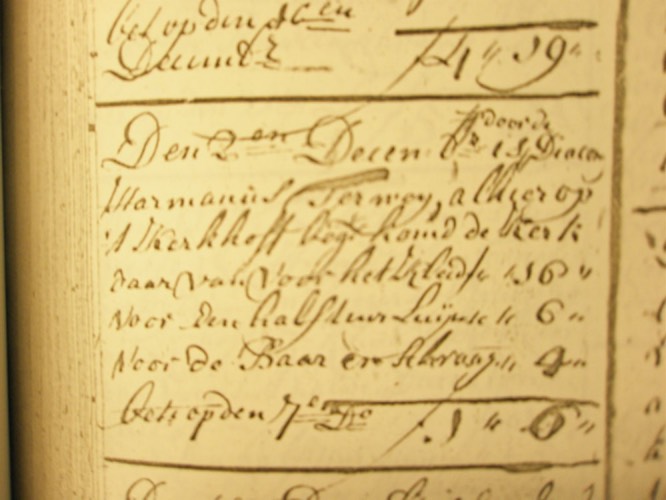 bet opden 16en
Decembr 4 " 19 "
Den 2en Decembr is door de Diacon
Harmanus Terwey, alhier op
't Kerkhoff beg: komd de Kerk
daar van Voor het Kleed " 16 "
Voor den half uur Luijen " 6 "
Voor de Baar en " 4 "
bet: opden 7en do 1 " 6 "